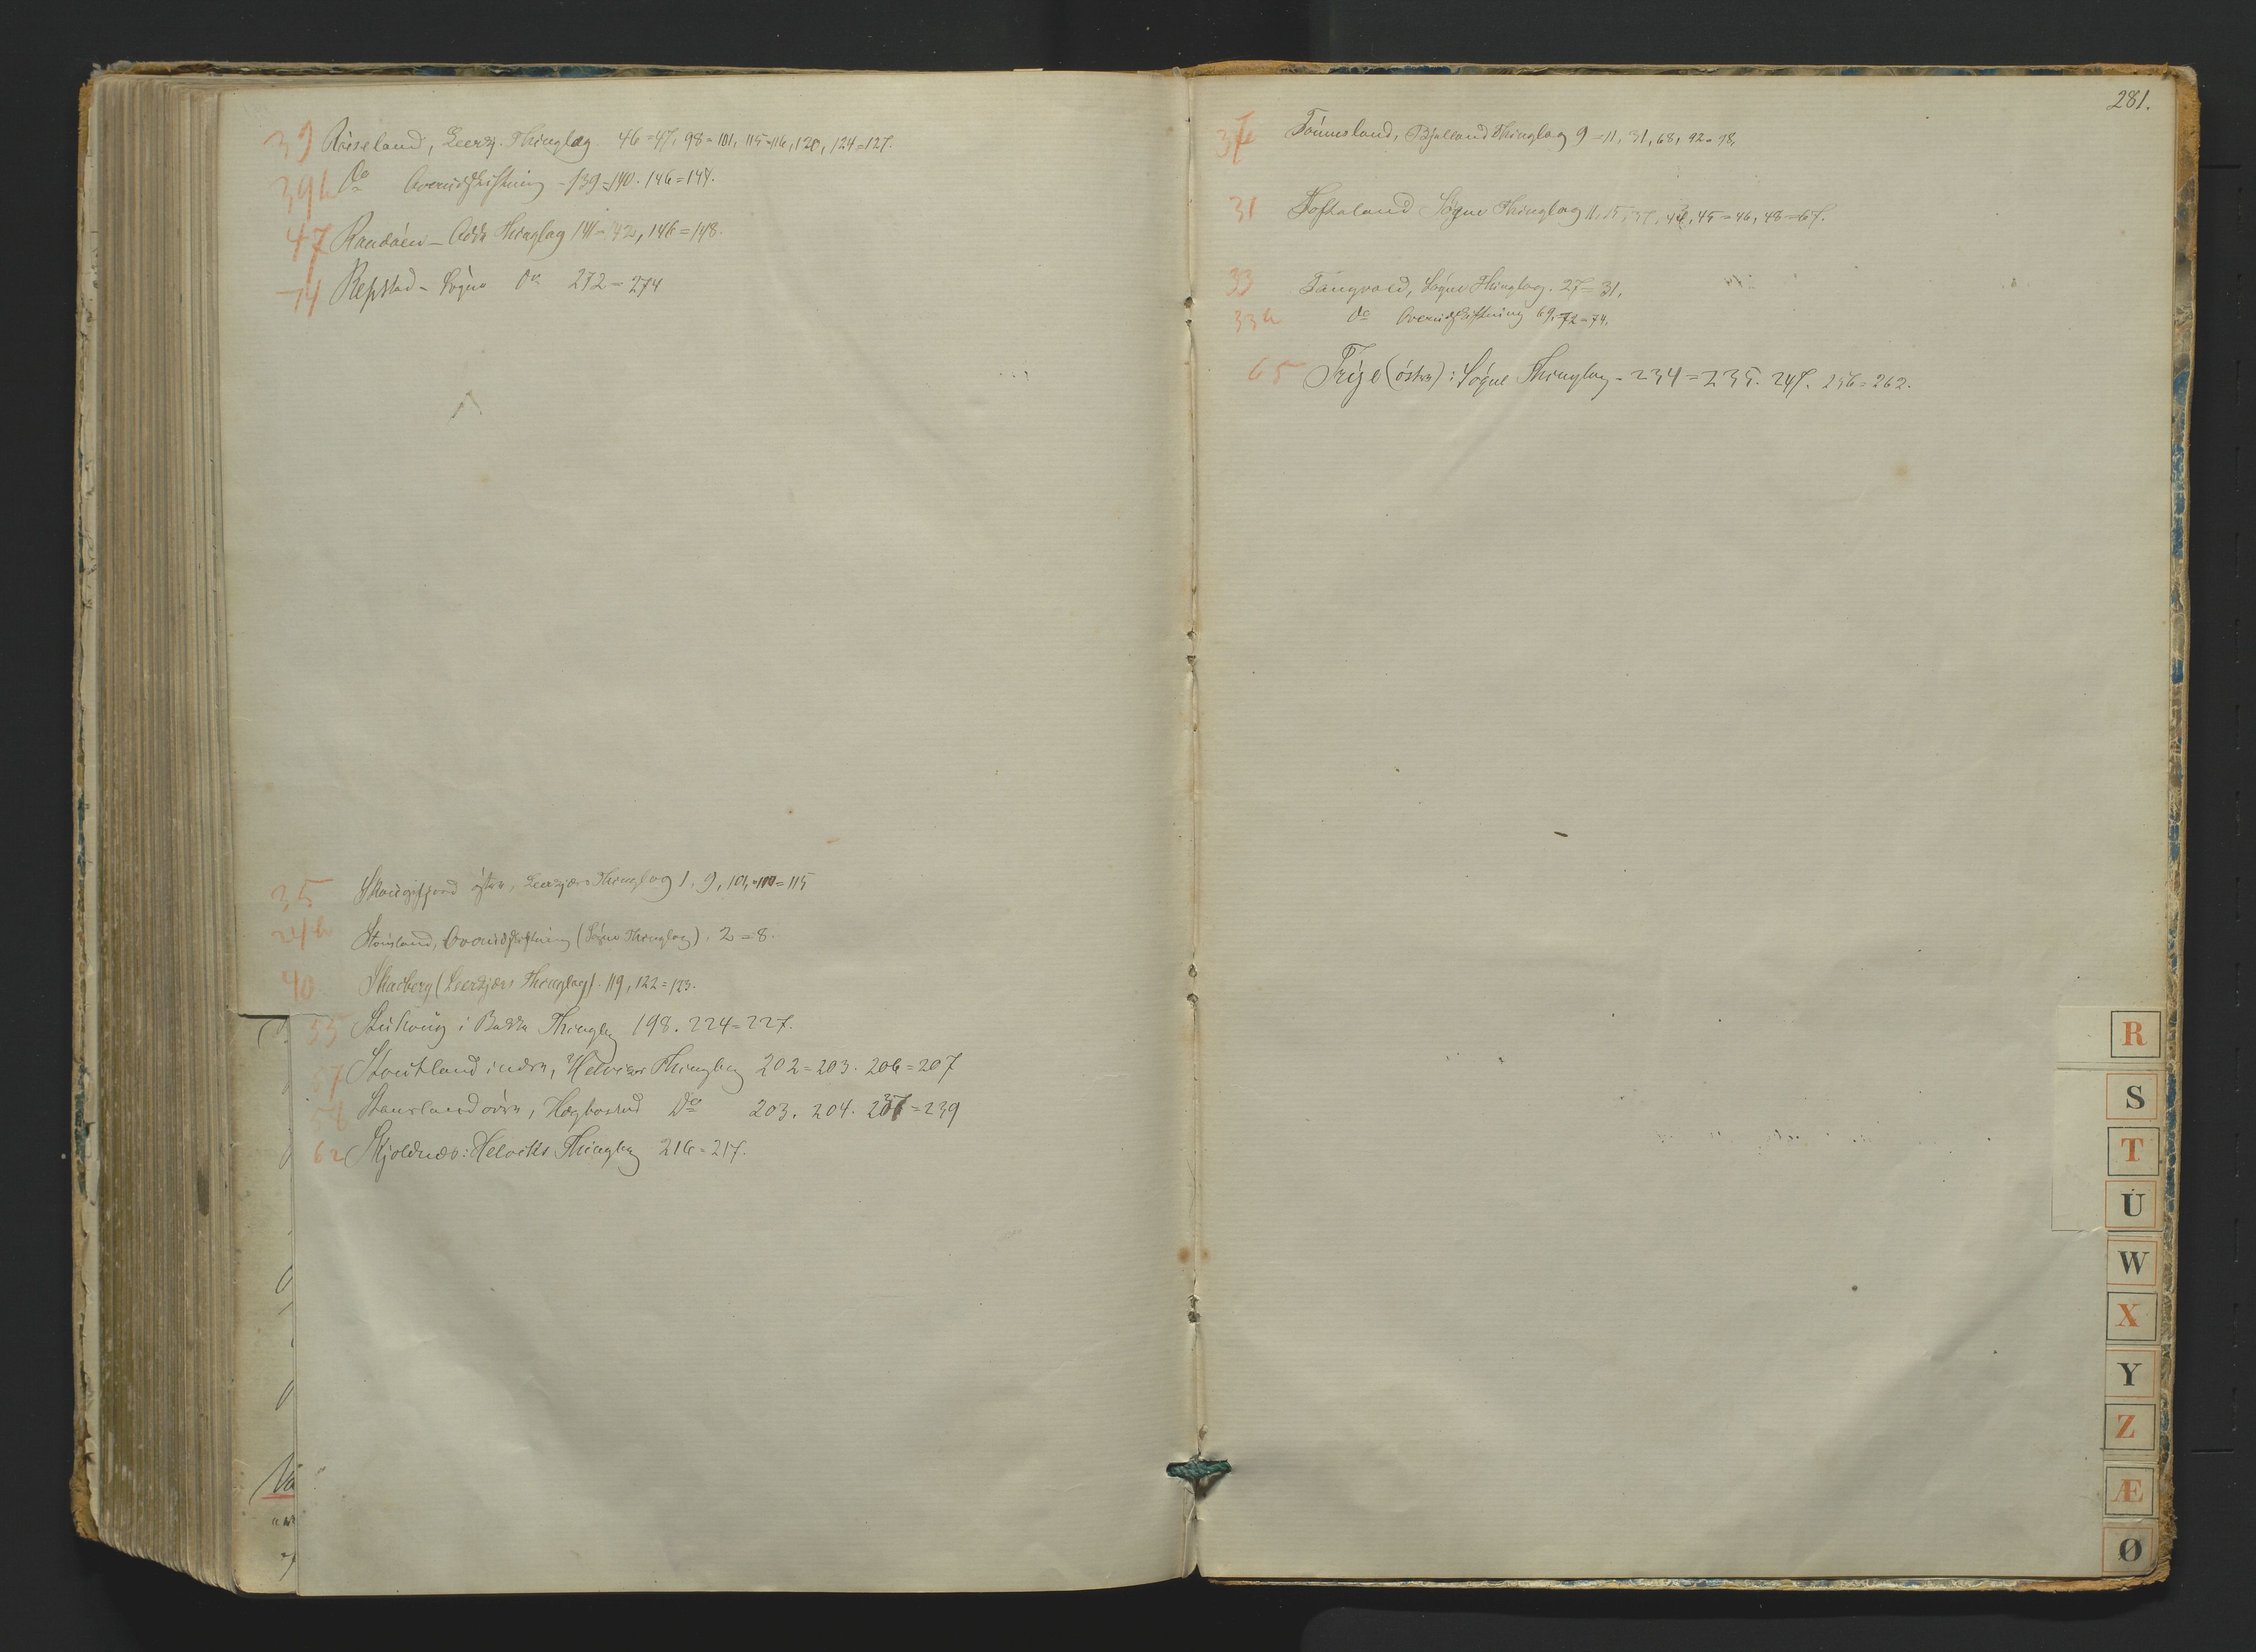 39 Röiseland, Leerv. Thinglag. 46=47, 98=101, 115=116, 120, 124=127.
39b Do Overudskiftning - 139=140. 146=147.
47 Randöen - Odd. Thinglag 141-142, 146=148.
74 Repstad - Søgne Do 272=274
35 østre, Thinglag 1, 9,
24b Overudskiftning (Søgne Thinglag). 2=8.
40 Skarberg ( Thinglag). 119, 122=123.
55 i Bakke Thinglag 198. 224=227.
57 indre, Thinglag 202=203. 206=207
58 øvre, Hægbostad Do 203. 204. 237=239
62 Skjoldnæs: Thinglag 216=217.
281.
37 Tönnesland, Bjelland Thinglag 9=11, 31, 68, 92=98.
31 Toftaland Søgne Thinglag 11, 15, 37, 45=46, 48=67.
33 Tangvald, Søgne Thinglag. 27=31.
33b Do Overudskiftning 69. 72=74.
65 Tryse (östre): Søgne Thinglag - 234=235. 247. 256=262.
R
S
T
U
W
X
Y
Z
Æ
Ø